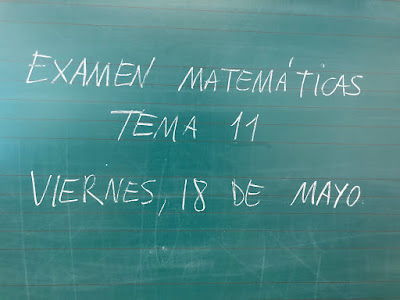 EXAMEN MATEMÁTICAS
TEMA 11
VIERNES, 18 DE MAYO